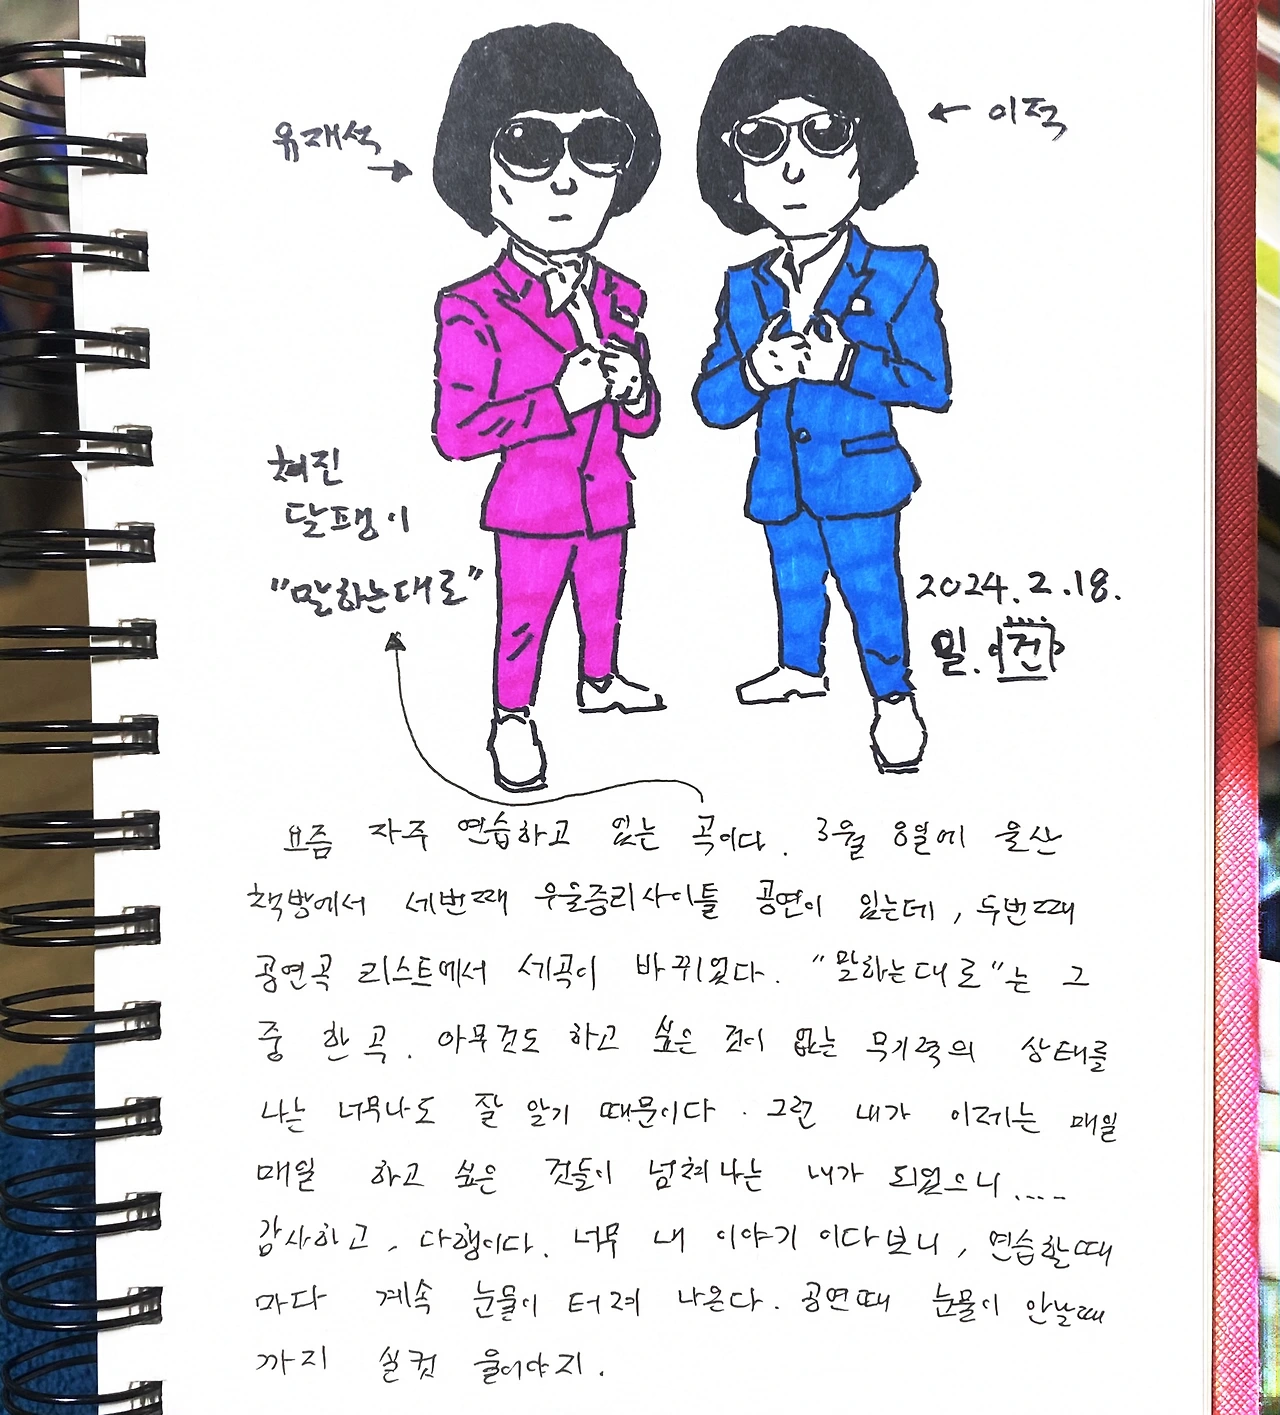 유재석
이적
처진
달팽이
"말하는대로"
2024.2.18.
일. 건
요즘 자주 연습하고 있는 곡이다. 3월 8일에 울산
책방에서 세번째 우울증리사이틀 공연이 있는데, 두번째
공연곡 리스트에서 세곡이 바뀌었다. "말하는대로"는 그
중 한 곡. 아무것도 하고 싶은 것이 없는 무기력의 상태를
나는 너무나도 잘 알기 때문이다. 그런 내가 이제는 매일
매일 하고 싶은 것들이 넘쳐나는 내가 되었으니....
감사하고, 다행이다. 너무 내 이야기 이다보니, 연습할때
마다 계속 눈물이 터져 나온다. 공연때 눈물이 안날때
까지 실컷 울어야지.